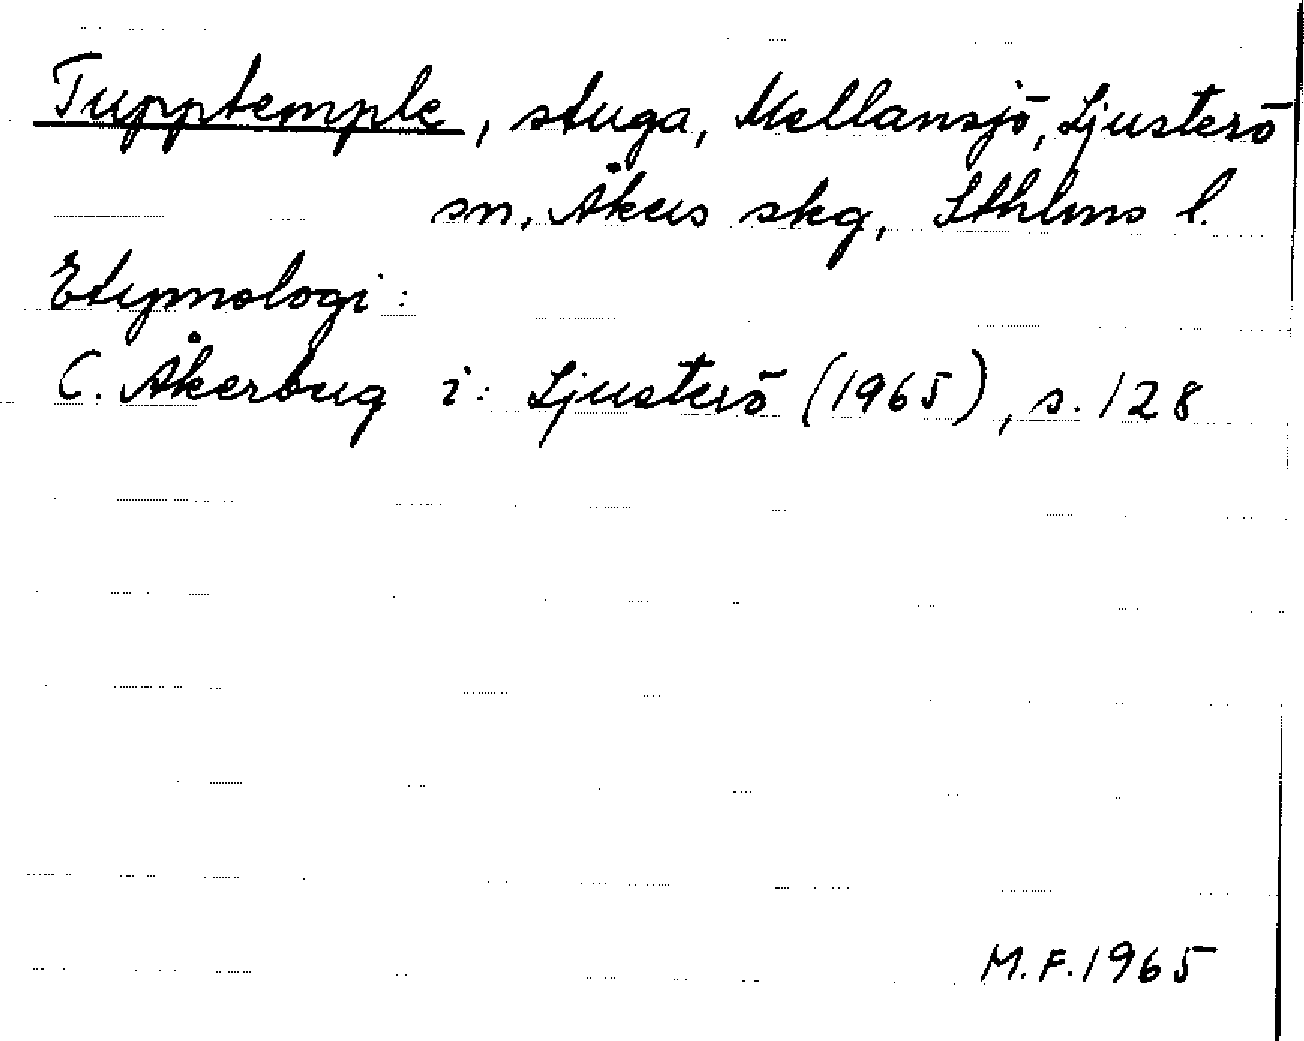 Tupptemple, stuga, Mellansjö, Ljusterö
sn, Åkers skg, Sthlms l.
Etymologi:
C. Åkerberg i: Ljusterö (1965), s. 128
M.F. 1965